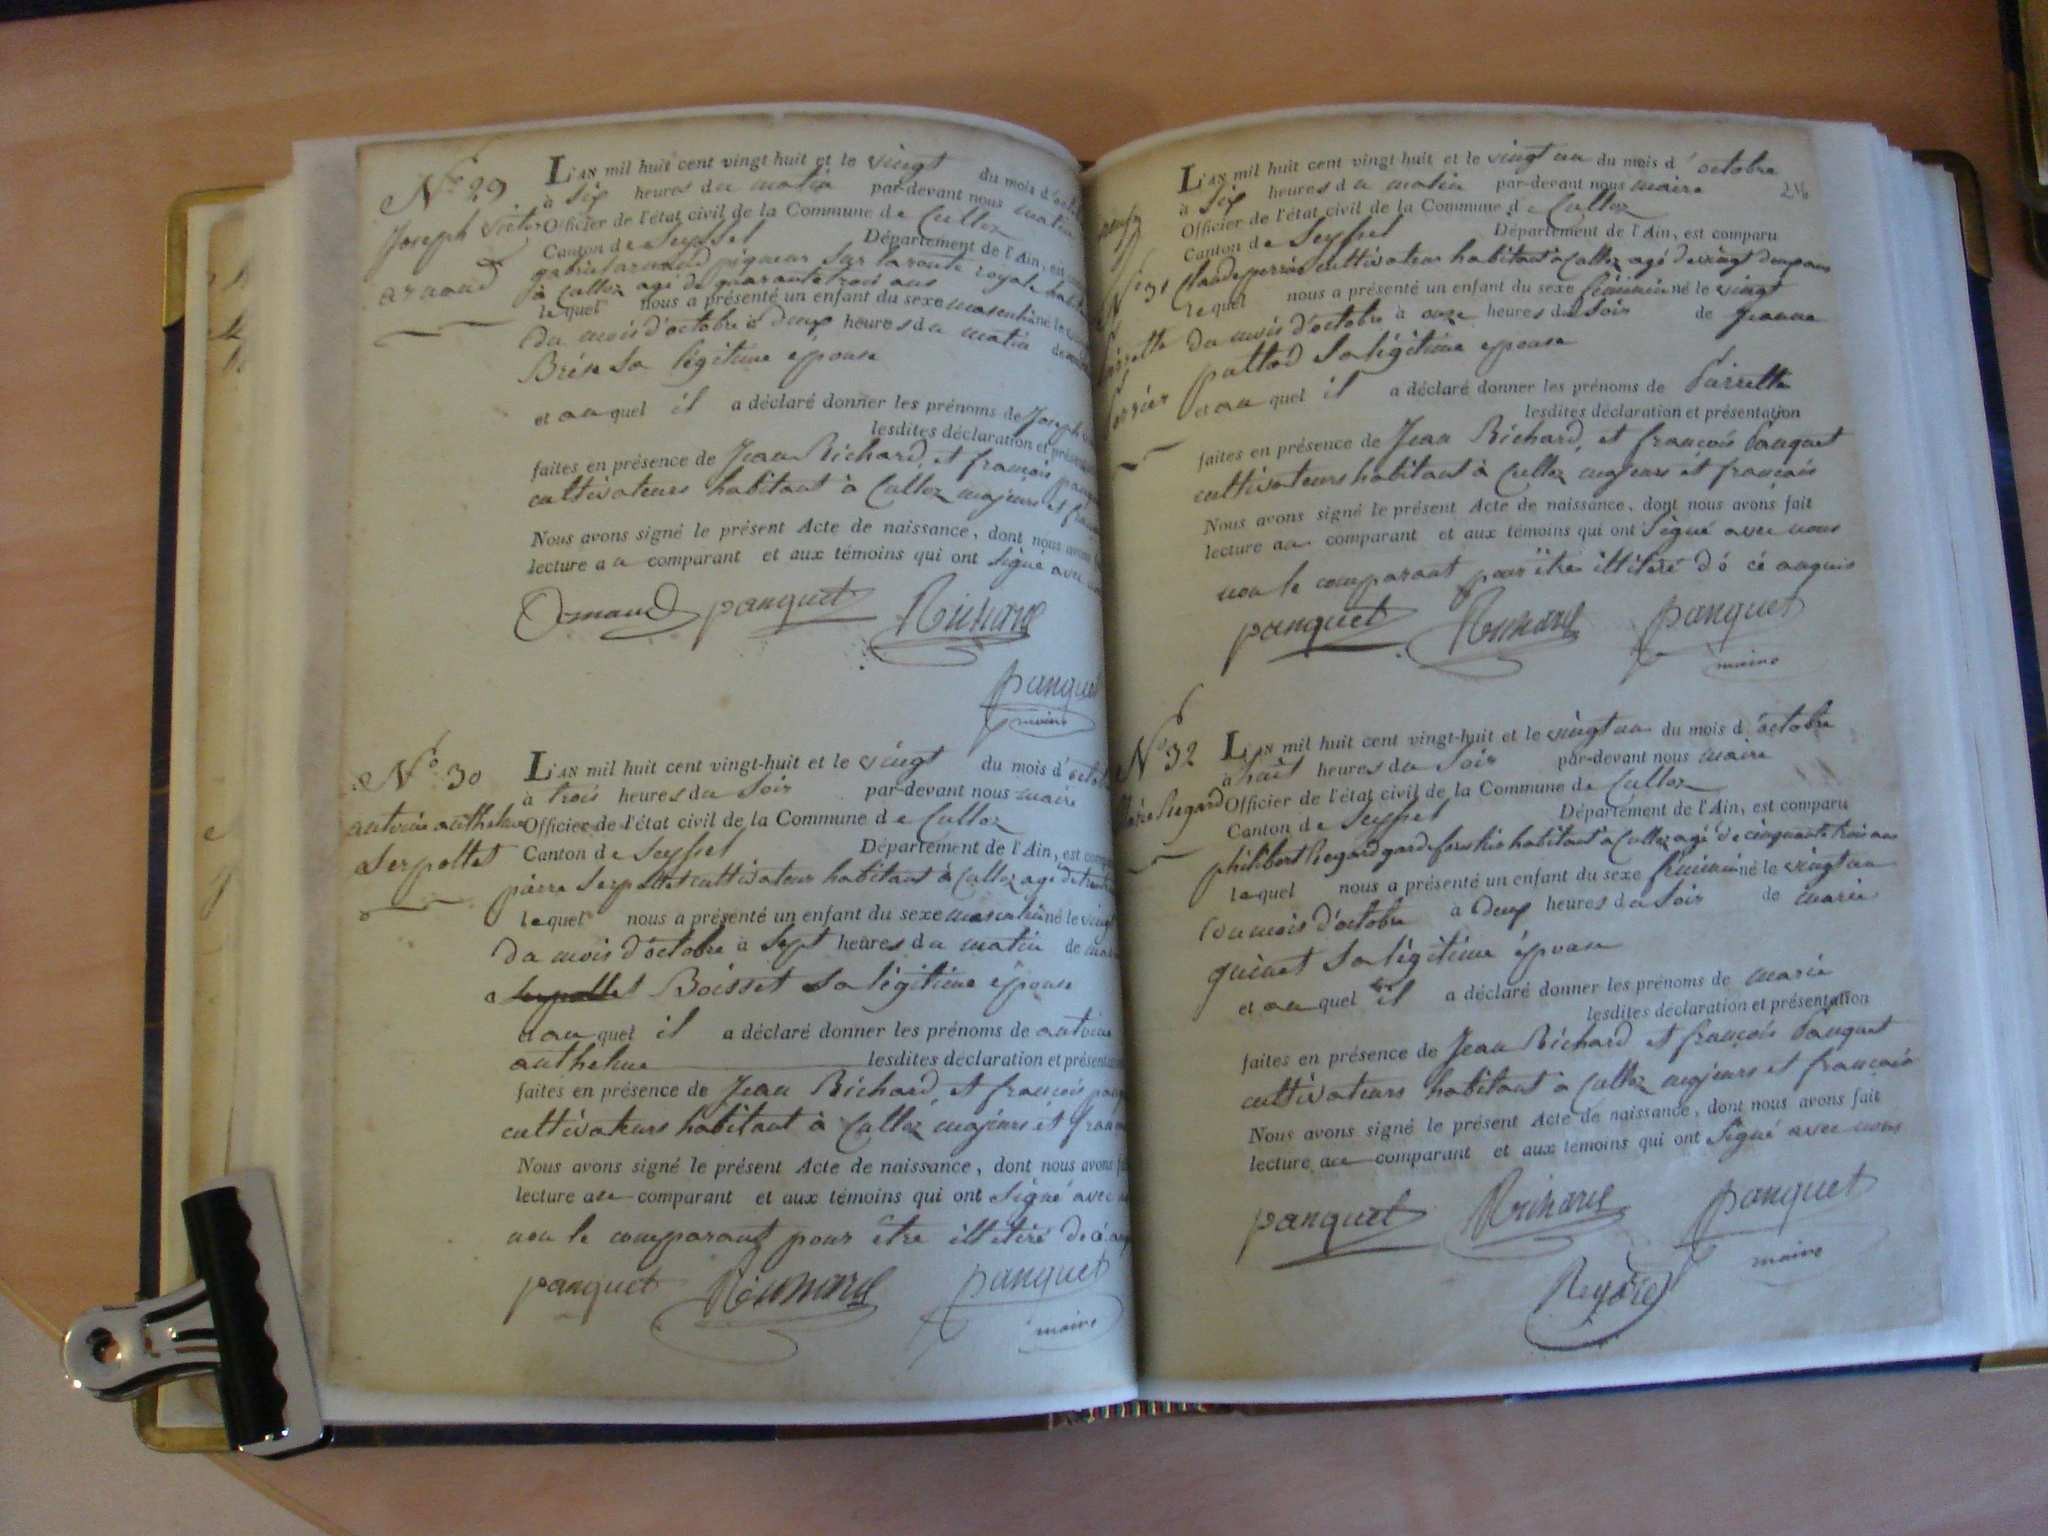 No 29
Joseph Victor
arnaud
L'AN mil huit cent vingt huit et le vingt du mois d'
à six heures du matin par-devant nous
Officier de l'état civil de la Commune de Culloz
Canton de Seyssel Département de l'Ain, est
arnaud piqueur sur la route royale
à Culloz agé de quarante trois ans
lequel nous a présenté un enfant du sexe masculin né le
du mois d'octobre à deux heures du matin de
sa légitime épouse
et auquel il a déclaré donner les prénoms de Joseph
lesdites déclaration et
faites en présence de Jean Richard, et francois
cultivateurs habitant à Culloz majeurs et
Nous avons signé le présent Acte de naissance, dont nous avons
lecture au comparant et aux témoins qui ont signé avec
panquet Richard
panquet
maire
No 30
antoine anthelme
Serpollet
L'AN mil huit cent vingt-huit et le vingt du mois d'
à trois heures du soir par-devant nous maire
Officier de l'état civil de la Commune de Culloz
Canton de Seyssel Département de l'Ain, est
pierre Serpollet cultivateur habitant à Culloz agé de
lequel nous a présenté un enfant du sexe masculin né le vingt
du mois d'octobre à sept heures du matin de
Boisset sa légitime épouse
et auquel il a déclaré donner les prénoms de antoine
anthelme lesdites déclaration et
faites en présence de Jean Richard, et francois
cultivateurs habitant à Culloz majeurs et
Nous avons signé le présent Acte de naissance, dont nous avons
lecture au comparant et aux témoins qui ont signé avec
non le comparant pour être illitéré de ce
panquet Richard panquet
maire
No 31
perrier
L'AN mil huit cent vingt huit et le vingt un du mois d'octobre
à six heures du matin par-devant nous maire
Officier de l'état civil de la Commune de Culloz
Canton de Seyssel Département de l'Ain, est comparu
Claude perrier cultivateur habitant à Culloz agé de vingt deux ans
lequel nous a présenté un enfant du sexe féminin né le vingt
du mois d'octobre à onze heures du soir de jeanne
sa légitime épouse
et auquel il a déclaré donner les prénoms de
lesdites déclaration et présentation
faites en présence de Jean Richard, et francois Panquet
cultivateurs habitant à Culloz majeurs et francais
Nous avons signé le présent Acte de naissance, dont nous avons fait
lecture au comparant et aux témoins qui ont signé avec nous
non le comparant pour être illitéré de ce
panquet Richard panquet
maire
No 32
L'AN mil huit cent vingt-huit et le vingt un du mois d'octobre
à huit heures du soir par-devant nous maire
Officier de l'état civil de la Commune de Culloz
Canton de Seyssel Département de l'Ain, est comparu
philibert habitant à Culloz agé de cinquante trois ans
lequel nous a présenté un enfant du sexe féminin né le vingt un
du mois d'octobre à deux heures du soir de marie
sa légitime épouse
et auquel il a déclaré donner les prénoms de marie
lesdites déclaration et présentation
faites en présence de Jean Richard et francois Panquet
cultivateurs habitant à Culloz majeurs et francais
Nous avons signé le présent Acte de naissance, dont nous avons fait
lecture au comparant et aux témoins qui ont signé avec nous
panquet Richard panquet
maire